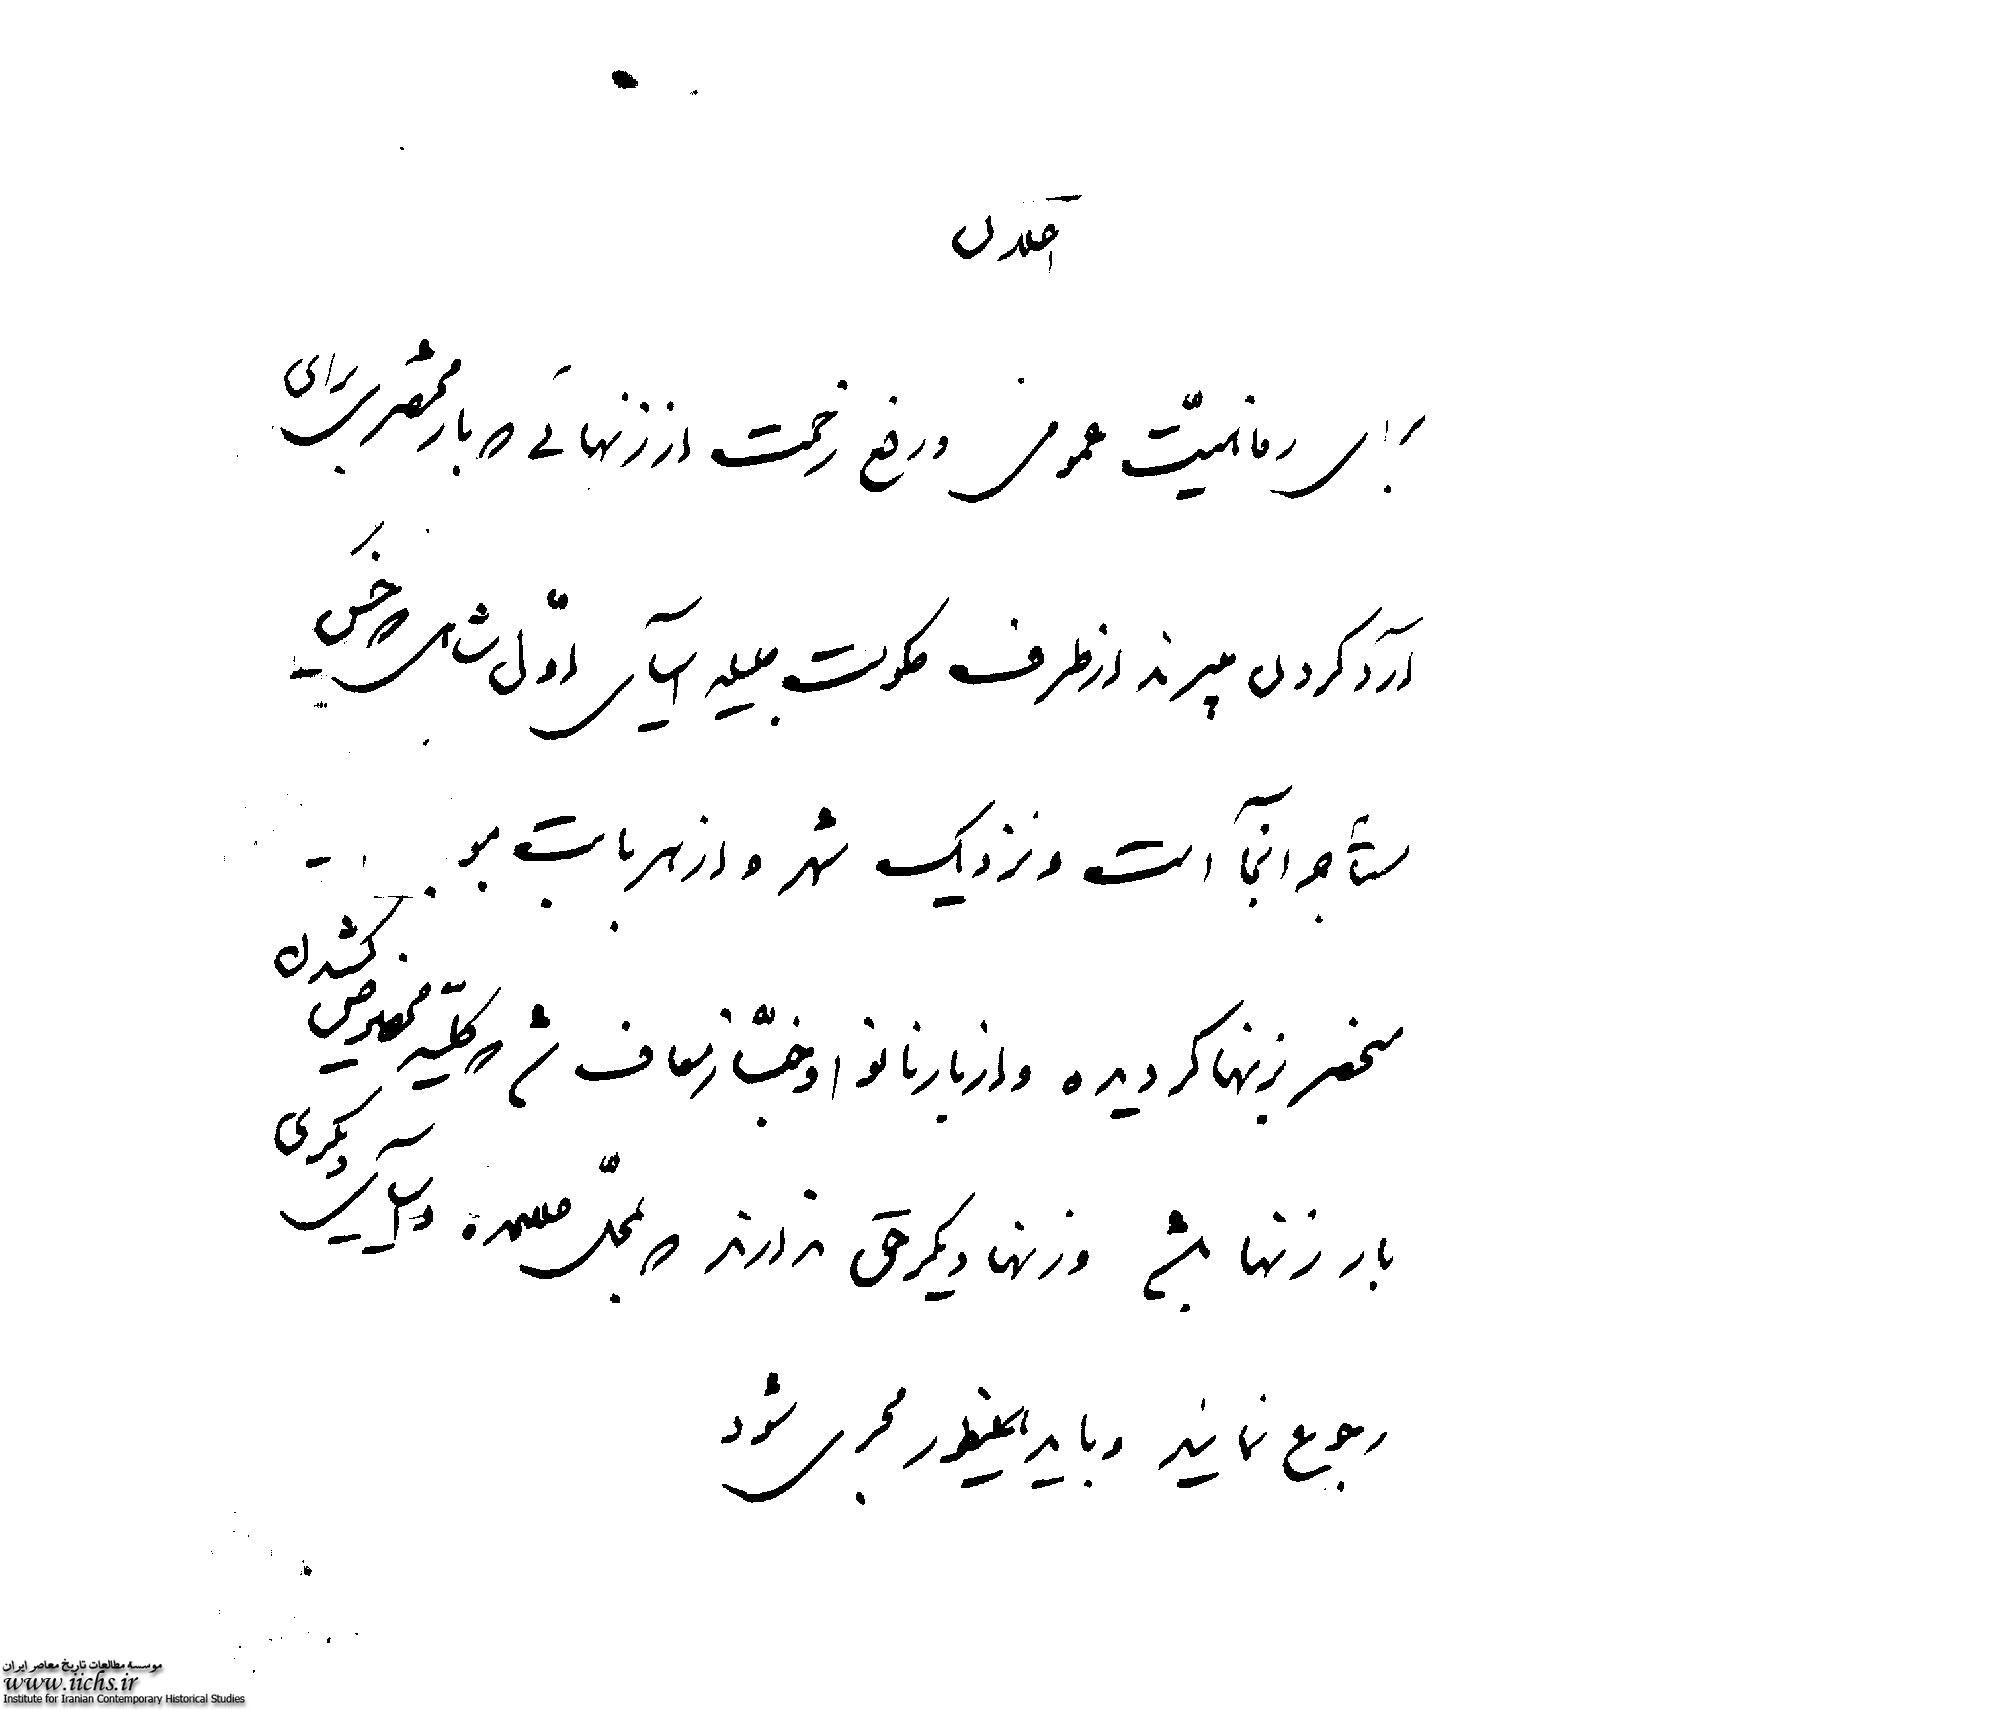 اعلان
برای رفاهیّت عمومی و رفع زحمت از زنهائے که بار مختصری برای
آرد کردن میبرند از طرف حکومت جلیله آسیای اوّل شاهی که حسن
مستأجر آنجا است و نزدیک شهر و از هر بابت
منحصر بزنها گردیده و از بار نانوا و خبّاز معاف شد که کلیّه مخصوص کشیدن
بار زنها باشد و زنها دیگر حق ندارند که بمحلّ علیحده و آسیای دیگری
رجوع نمایند و باید اینطور مجری شود
موسسه مطالعات تاریخ معاصر ایران
www.iichs.ir
Institute for Iranian Contemporary Historical Studies